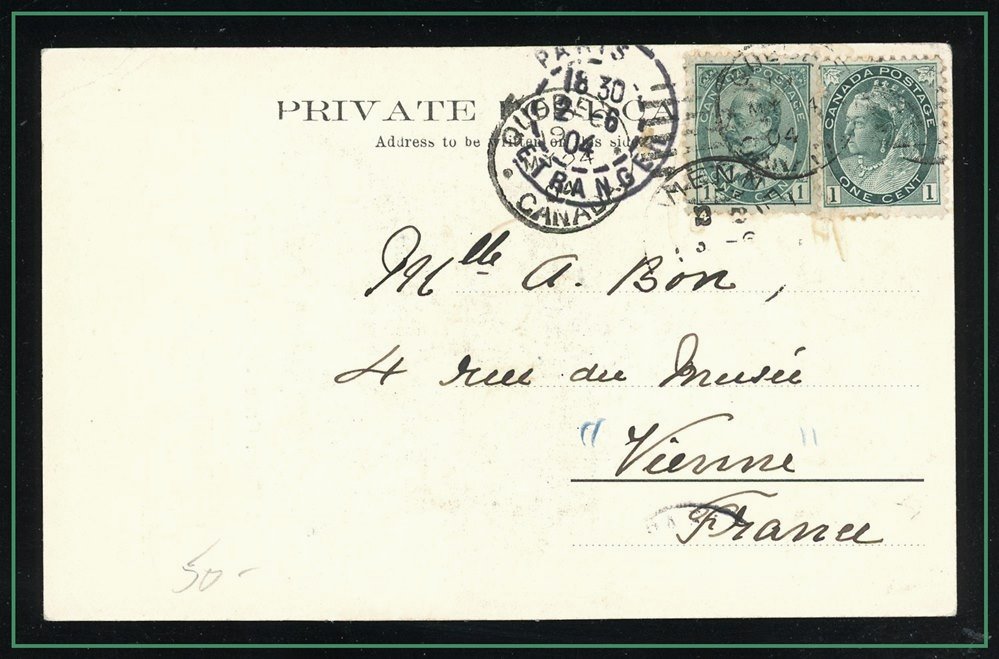 PARIS
18 30
2 - 6
04
ETRANGER
QUEBEC
CANADA
PRIVATE
Address to be written on this side
CANADA POSTAGE
1 ONE CENT 1
CANADA POSTAGE
1 ONE CENT 1
04
Mlle A. Bon,
4 rue du Musée
"Vienne"
France
50-